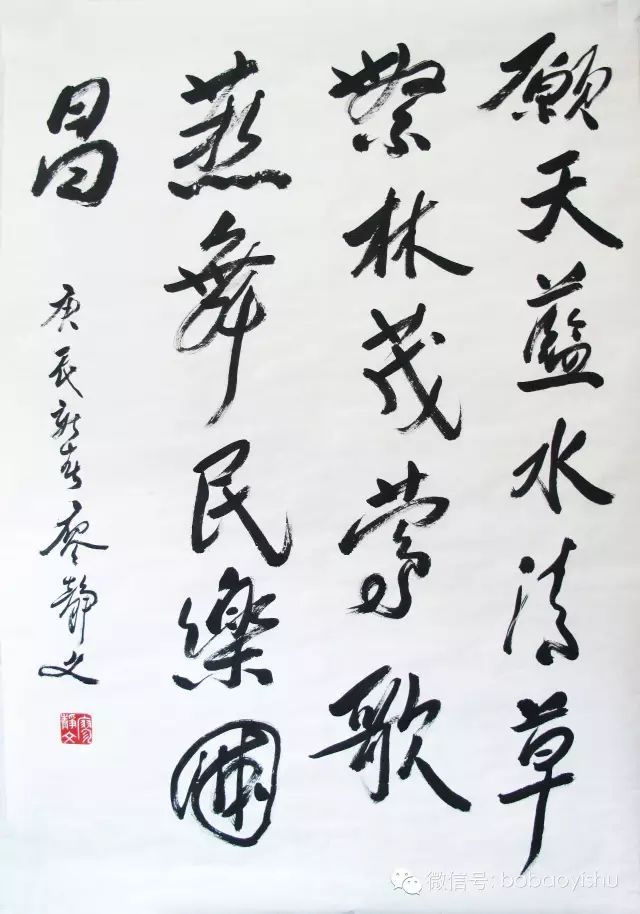 願天藍水清草
繁林茂莺歌
燕舞民樂國
昌
庚辰新春廖静文
廖静文
微信号: bobaoyishu